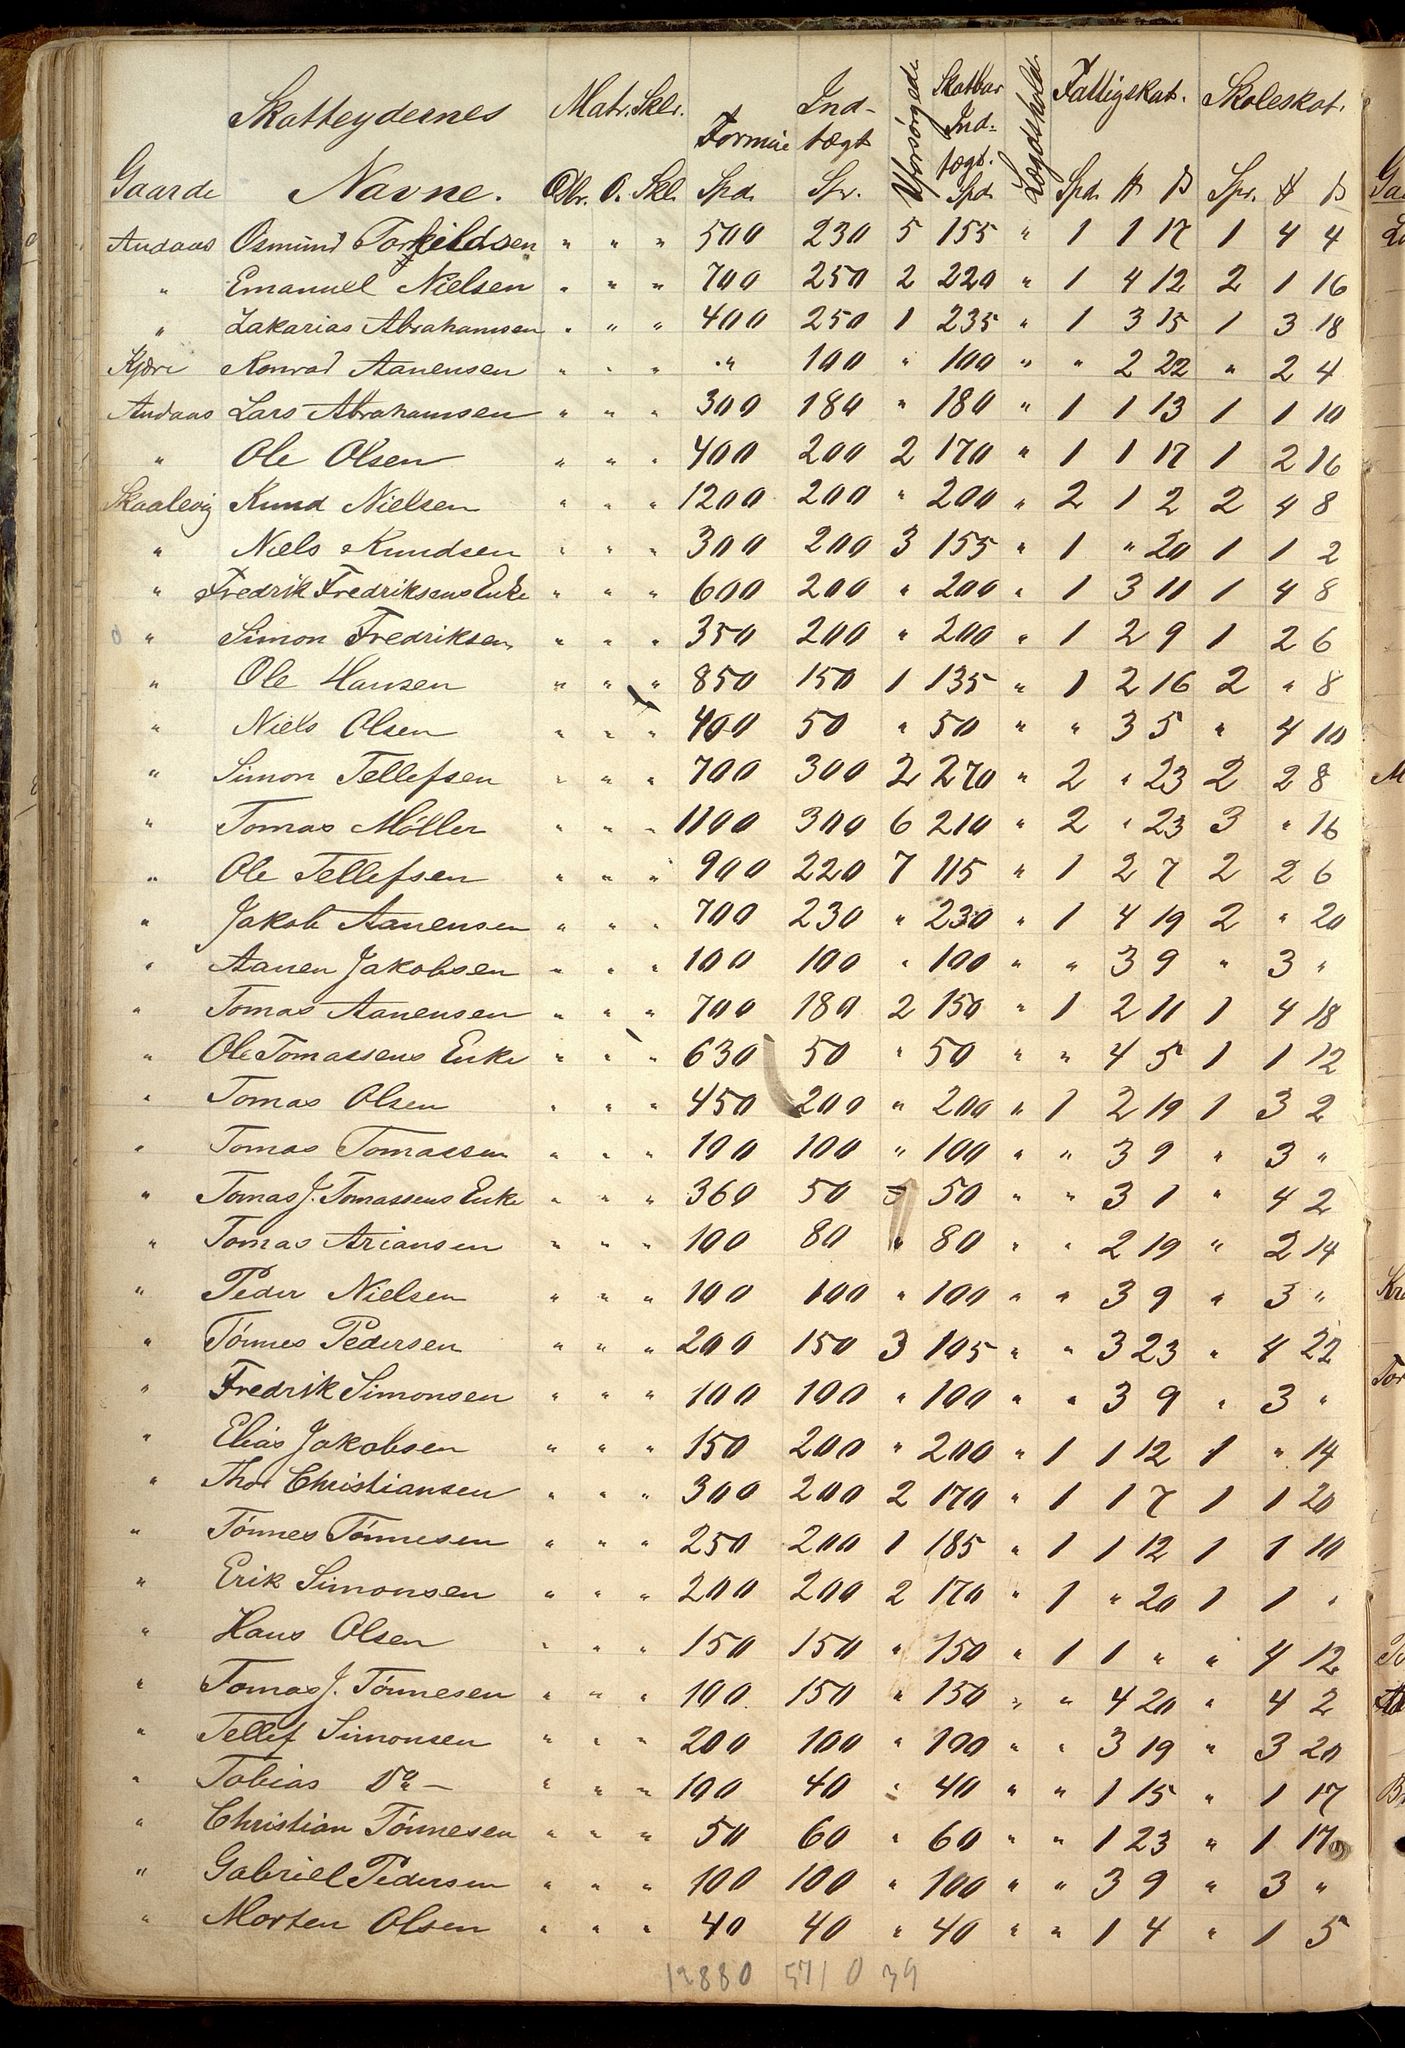 Skatteydernes Matr. Skler. Formue Ind-tægt Uforsørgede Skatbar Ind-tægt. Lægdshold Fattigskat. Skoleskat.
Gaarde Navne. Dlr. O. Skl. Spd. Spr. Spd. Spd. ₰ β Spr. ₰ β
Andaas Osmund Torkildsen " " " 500 230 5 155 " 1 1 17 1 4 4
" Emanuel Nielsen " " " 700 250 2 220 " 1 4 12 2 1 16
" Zakarias Abrahamsen " " " 400 250 1 235 " 1 3 15 1 3 18
Kjære Konrad Aanensen " " " " 100 " 100 " " 2 22 " 2 4
Andaas Lars Abrahamsen " " " 300 180 " 180 " 1 1 13 1 1 10
" Ole Olsen " " " 400 200 2 170 " 1 1 17 1 2 16
Skaalevig Knud Nielsen " " " 1200 200 " 200 " 2 1 2 2 4 8
" Niels Knudsen " " " 300 200 3 155 " 1 " 20 1 1 2
" Fredrik Fredriksens Enke " " " 600 200 " 200 " 1 3 11 1 4 8
" Simon Fredriksen " " " 350 200 " 200 " 1 2 9 1 2 6
" Ole Hansen " " " 850 150 1 135 " 1 2 16 2 " 8
" Niels Olsen " " " 400 50 " 50 " " 3 5 " 4 10
" Simon Tellefsen " " " 700 300 2 270 " 2 " 23 2 2 8
" Tomas Möller " " " 1100 300 6 210 " 2 " 23 3 " 16
" Ole Tellefsen " " " 900 220 7 115 " 1 2 7 2 2 6
" Jakob Aanensen " " " 700 230 " 230 " 1 4 19 2 " 20
" Aanen Jakobsen " " " 100 100 " 100 " " 3 9 " 3 "
" Tomas Aanensen " " " 700 180 2 150 " 1 2 11 1 4 18
" Ole Tomassens Enke " " " 630 50 " 50 " " 4 5 1 1 12
" Tomas Olsen " " " 450 200 " 200 " 1 2 19 1 3 2
" Tomas Tomassen " " " 100 100 " 100 " " 3 9 " 3 "
" Tomas J. Tomassens Enke " " " 360 50 50 " " 3 1 " 4 2
" Tomas Ariansen " " " 100 80 " 80 " " 2 19 " 2 14
" Peder Nielsen " " " 100 100 " 100 " " 3 9 " 3 "
" Tönnes Pedersen " " " 200 150 3 105 " " 3 23 " 4 22
" Fredrik Simonsen " " " 100 100 " 100 " " 3 9 " 3 "
" Elias Jakobsen " " " 150 200 " 200 " 1 1 12 1 " 14
" Thor Christiansen " " " 300 200 2 170 " 1 1 7 1 1 20
" Tönnes Tönnesen " " " 250 200 1 185 " 1 1 12 1 1 10
" Erik Simonsen " " " 200 200 2 170 " 1 " 20 1 1 "
" Hans Olsen " " " 150 150 " 150 " 1 1 " " 4 12
" Tomas J. Tönnesen " " " 100 150 " 150 " " 4 20 " 4 2
" Tellef Simonsen " " " 200 100 " 100 " " 3 19 " 3 20
" Tobias Do — " " " 100 40 " 40 " " 1 15 " 1 17
" Christian Tönnesen " " " 50 60 " 60 " " 1 23 " 1 17
" Gabriel Pedersen " " " 100 100 " 100 " " 3 9 " 3 "
" Morten Olsen " " " 40 40 " 40 " " 1 4 " 1 5
12880 5710 39